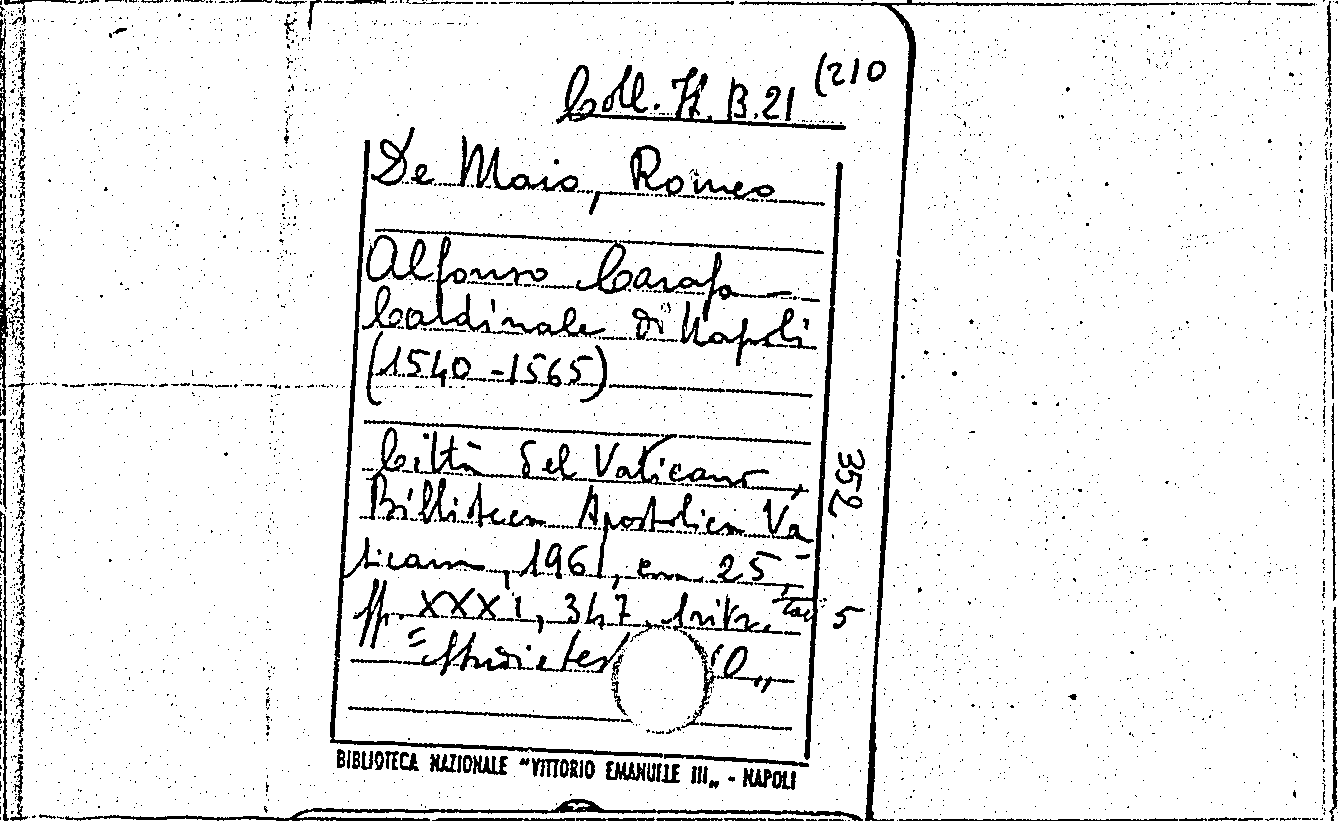 Coll. It. B. 21 (210
De Maio, Romeo
Alfonso Carafa
Cardinale di Napoli
(1540-1565)
Città del Vaticano,
Biblioteca Apostolica Va
ticana, 1961, cm. 25,
pp. XXXI, 347, tav. 5
"Studi e tes 10„
352.
BIBLIOTECA NAZIONALE "VITTORIO EMANUELE III„ - NAPOLI